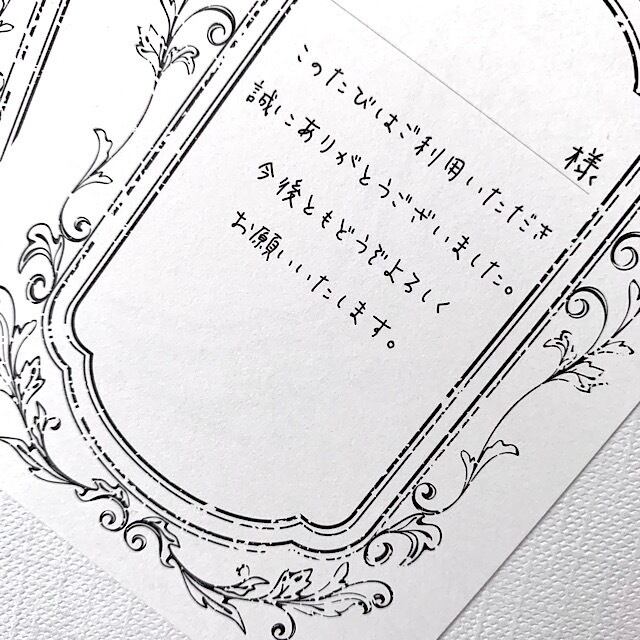 様
このたびはご利用いただき
誠にありがとうございました。
今後ともどうぞよろしく
お願いいたします。